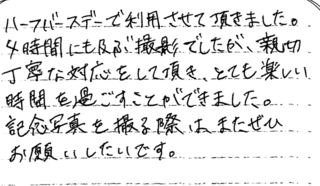 ハーフバースデーで利用させて頂きました。
4時間にも及ぶ撮影でしたが、親切
丁寧な対応をして頂き、とても楽しい
時間を過ごすことができました。
記念写真を撮る際は、またぜひ
お願いしたいです。